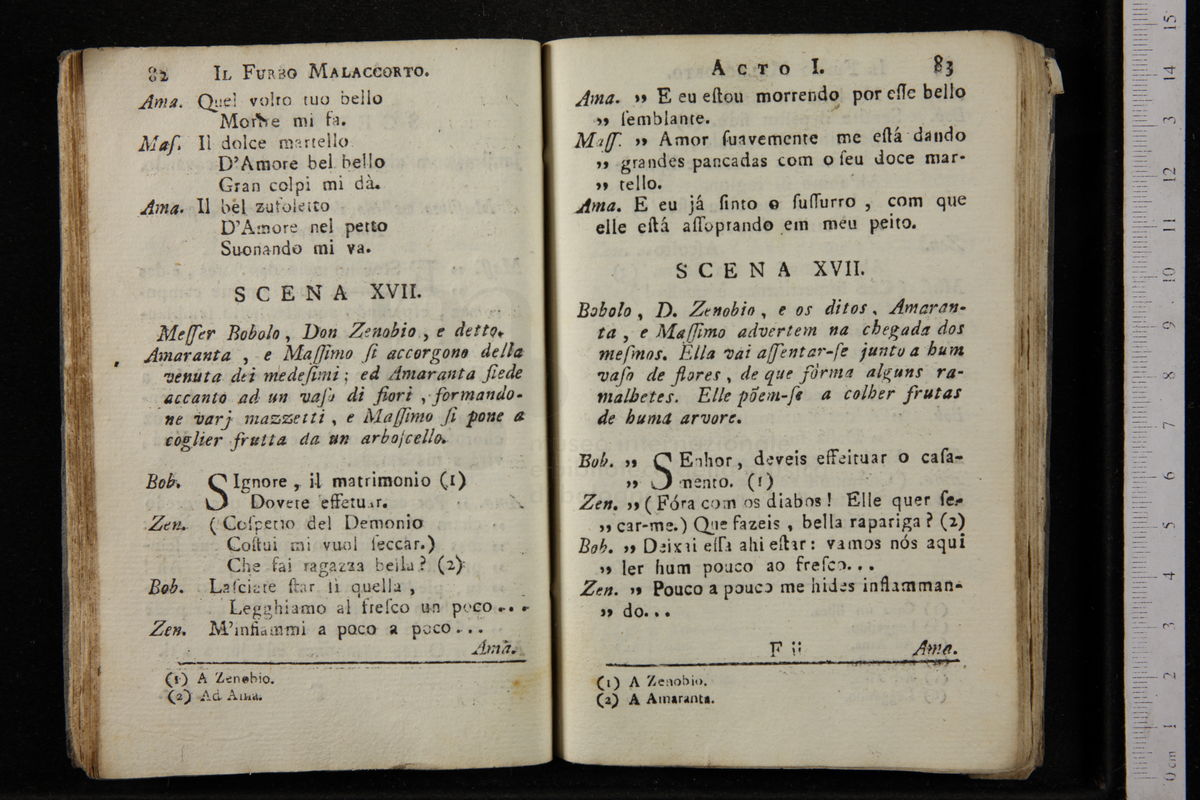 82 IL FURBO MALACCORTO.
Ama. Quel volto tuo bello
Morire mi fa.
Maſ. Il dolce martello
D'Amore bel bello
Gran colpi mi dà.
Ama. Il bel zufoletto
D'Amore nel petto
Suonando mi va.
SCENA XVII.
Meſſer Bobolo, Don Zenobio, e detto.
Amaranta, e Maſſimo ſi accorgono della
venuta dei medeſimi; ed Amaranta ſiede
accanto ad un vaſo di fiori, formando-
ne varj mazzetti, e Maſſimo ſi pone a
coglier frutta da un arboſcello.
Bob. SIgnore, il matrimonio (1)
Dovete effetuar.
Zen. (Coſpetto del Demonio
Coſtui mi vuol ſeccar.)
Che fai ragazza bella? (2)
Bob. Laſciate ſtar lì quella,
Legghiamo al freſco un poco...
Zen. M'infiammi a poco a poco...
Ama.
(1) A Zenobio.
(2) Ad Ama.
ACTO I. 83
Ama. ,, E eu eſtou morrendo por eſſe bello
,, ſemblante.
Maſſ. ,, Amor ſuavemente me eſtá dando
,, grandes pancadas com o ſeu doce mar-
,, tello.
Ama. E eu já ſinto o ſuſſurro, com que
elle eſtá aſſoprando em meu peito.
SCENA XVII.
Bobolo, D. Zenobio, e os ditos. Amaran-
ta, e Maſſimo advertem na chegada dos
meſmos. Ella vai aſſentar-ſe junto a hum
vaſo de flores, de que fórma alguns ra-
malhetes. Elle põem-ſe a colher frutas
de huma arvore.
Bob. ,, SEnhor, deveis effeituar o caſa-
,, mento. (1)
Zen. ,, (Fóra com os diabos! Elle quer ſe-
,, car-me.) Que fazeis, bella rapariga? (2)
Bob. ,, Deixai eſſa ahi eſtar: vamos nós aqui
,, ler hum pouco ao freſco...
Zen. ,, Pouco a pouco me hides inflamman-
,, do...
F ii Ama.
(1) A Zenobio.
(2) A Amaranta.
0 cm 1 2 3 4 5 6 7 8 9 10 11 12 13 14 15